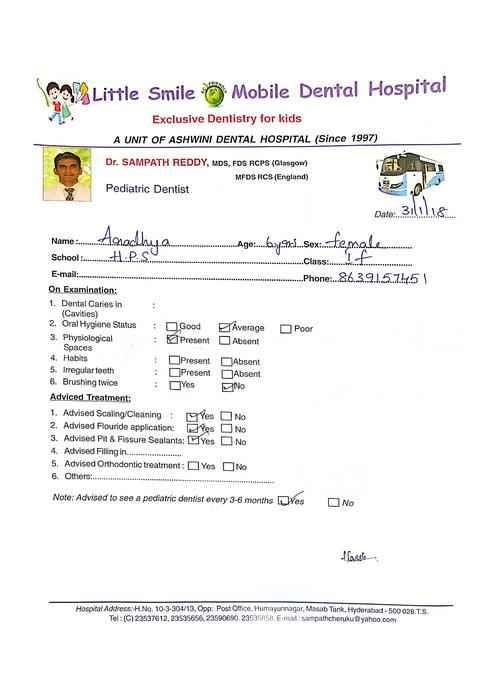 Little Smile Mobile Dental Hospital
Exclusive Dentistry for kids
A UNIT OF ASHWINI DENTAL HOSPITAL (Since 1997)
Dr. SAMPATH REDDY, MDS, FDS RCPS (Glasgow)
MFDS RCS (England)
Pediatric Dentist
Date: 31/1/18
Name: Aaradhya Age: 6yrs Sex: female
School: H.P.S Class: If
E-mail: Phone: 8639157451
On Examination:
1. Dental Caries in :
(Cavities)
2. Oral Hygiene Status : Good Average Poor
3. Physiological : Present Absent
Spaces
4. Habits : Present Absent
5. Irregular teeth : Present Absent
6. Brushing twice : Yes No
Adviced Treatment:
1. Advised Scaling/Cleaning : Yes No
2. Advised Flouride application: Yes No
3. Advised Pit & Fissure Sealants: Yes No
4. Advised Filling in
5. Advised Orthodontic treatment : Yes No
6. Others:
Note: Advised to see a pediatric dentist every 3-6 months Yes No
Hospital Address:-H.No. 10-3-304/13, Opp: Post Office, Humayunnagar, Masab Tank, Hyderabad - 500 028.T.S.
Tel : (C) 23537612, 23535656, 23590690. 23535858. E-mail : sampathcheruku@yahoo.com